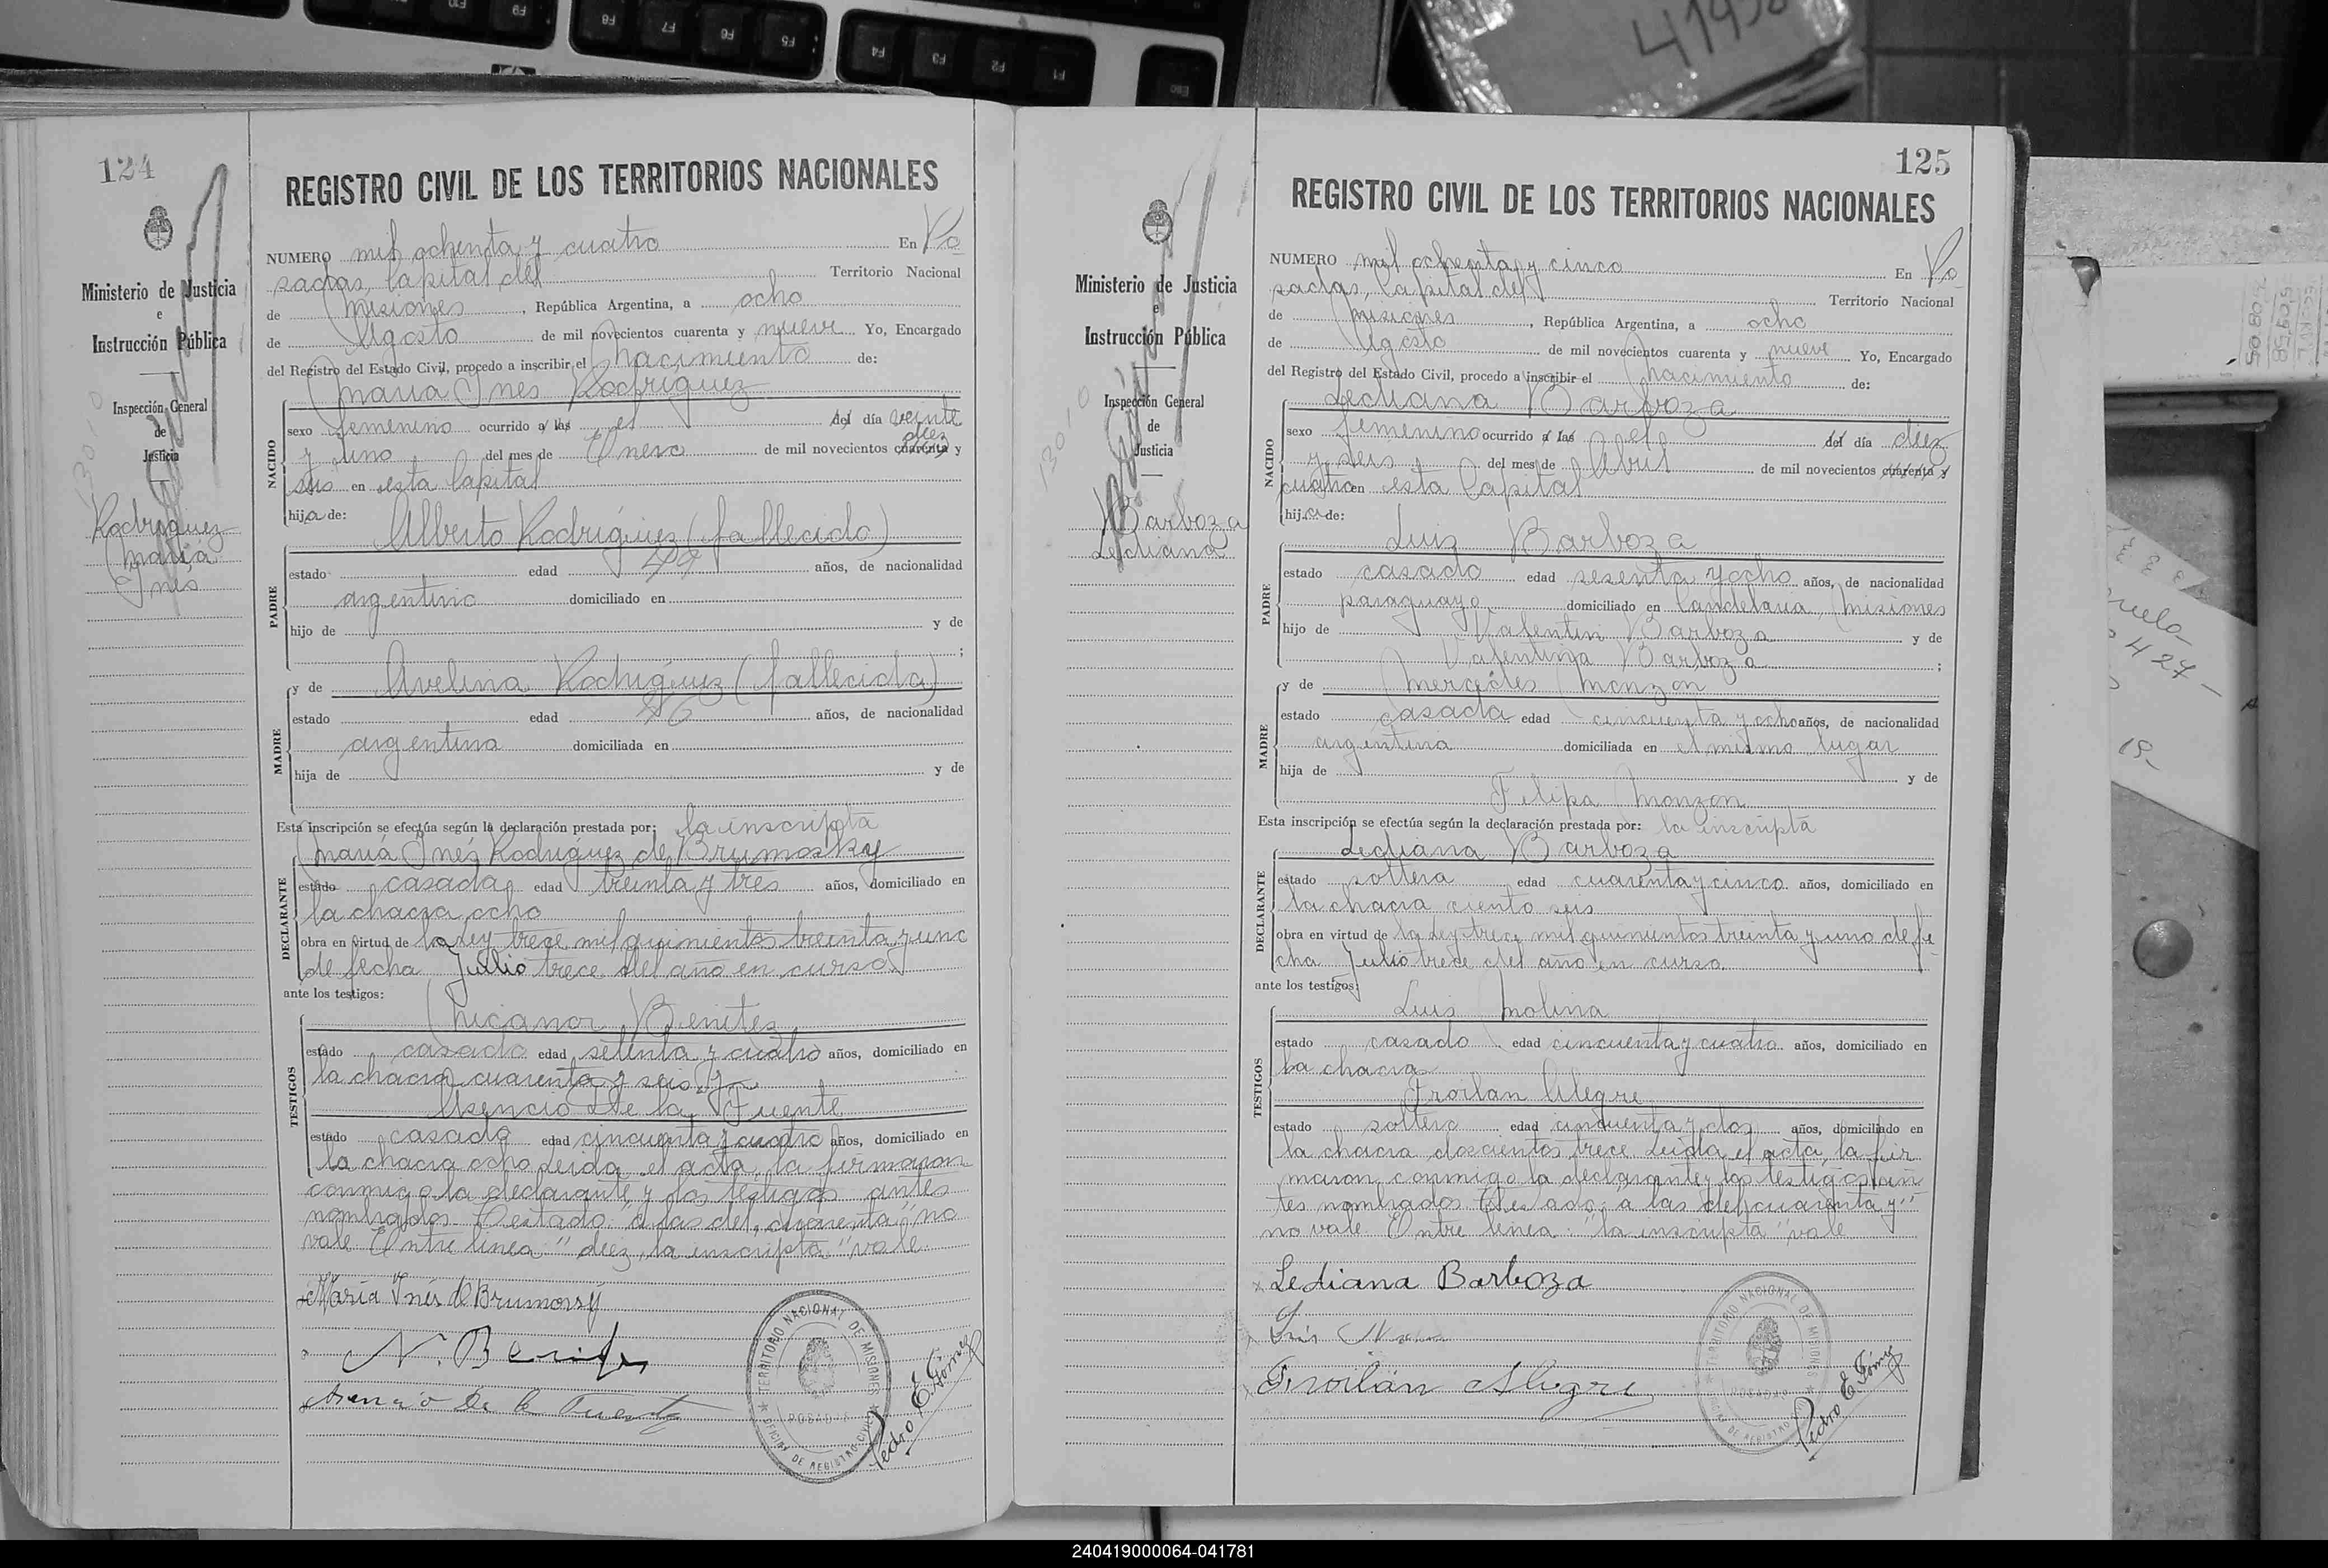 124
REGISTRO CIVIL DE LOS TERRITORIOS NACIONALES
Ministerio de Justicia
e
Instrucción Pública
Inspección General
de
Justicia
Rodriguez
Maria
Ines
NUMERO mil ochenta y cuatro En Po
sadas, Capital del Territorio Nacional
de Misiones, República Argentina, a ocho
de Agosto de mil novecientos cuarenta y nueve Yo, Encargado
del Registro del Estado Civil, procedo a inscribir el nacimiento de:
Maria Ines Rodriguez
NACIDO
sexo femenino ocurrido a las el del día veinte
diez
y uno del mes de Enero de mil novecientos cuarenta y
seis en esta Capital
hija de:
Alberto Rodriguez (fallecido)
PADRE
estado edad 49 años, de nacionalidad
argentino domiciliado en
hijo de y de
;
MADRE
y de Avelina Rodriguez (fallecida)
estado edad 46 años, de nacionalidad
argentina domiciliada en
hija de y de
Esta inscripción se efectúa según la declaración prestada por: la inscripta
Maria Inés Rodriguez de Brumosky
DECLARANTE
estado casada edad treinta y tres años, domiciliado en
la chacra ocho
obra en virtud de la Ley trece mil quinientos treinta y uno
de fecha Julio trece del año en curso
ante los testigos:
Nicanor Benitez
TESTIGOS
estado casado edad setenta y cuatro años, domiciliado en
la chacra cuarenta y seis. Y
Asencio De la Fuente
estado casado edad cincuenta y cuatro años, domiciliado en
la chacra ocho Leida el acta, la firmaron
conmigo la declarante y los testigos antes
nombrados. Testado: "a las del, cuarenta" no
vale. Entre linea: "diez, la inscripta" vale.
Maria Inés d Brumosky
N. Benites
Asencio De la Fuente
TERRITORIO NACIONAL DE MISIONES
POSADAS
OFICINA DE REGISTRO CIVIL
Pedro E. Gómez
125
REGISTRO CIVIL DE LOS TERRITORIOS NACIONALES
Ministerio de Justicia
e
Instrucción Pública
Inspección General
de
Justicia
Barboza
Lediana
NUMERO mil ochenta y cinco En Po
sadas, Capital del Territorio Nacional
de Misiones, República Argentina, a ocho
de Agosto de mil novecientos cuarenta y nueve Yo, Encargado
del Registro del Estado Civil, procedo a inscribir el nacimiento de:
Lediana Barboza
NACIDO
sexo femenino ocurrido a las el del día diez
y seis del mes de Abril de mil novecientos cuarenta y
cuatro en esta Capital
hija de:
Luis Barboza
PADRE
estado casado edad sesenta y ocho años, de nacionalidad
paraguayo domiciliado en Candelaria, Misiones
hijo de Valentin Barboza y de
Valentina Barboza ;
MADRE
y de Mercedes Monzon
estado casada edad cincuenta y ocho años, de nacionalidad
argentina domiciliada en el mismo lugar
hija de y de
Felipa Monzon
Esta inscripción se efectúa según la declaración prestada por: la inscripta
Lediana Barboza
DECLARANTE
estado soltera edad cuarenta y cinco años, domiciliado en
la chacra ciento seis
obra en virtud de la Ley trece mil quinientos treinta y uno de fe
cha Julio trece del año en curso.
ante los testigos:
Luis Molina
TESTIGOS
estado casado edad cincuenta y cuatro años, domiciliado en
la chacra
Froilan Alegre
estado soltero edad cincuenta y dos años, domiciliado en
la chacra doscientos trece Leida el acta, la fir
maron conmigo la declarante y los testigos an
tes nombrados. Testado: "a las del, cuarenta y"
no vale. Entre linea: "la inscripta" vale
Lediana Barboza
Luis
Froilán Alegre
TERRITORIO NACIONAL DE MISIONES
POSADAS
OFICINA DE REGISTRO CIVIL
Pedro E. Gómez
240419000064-041781